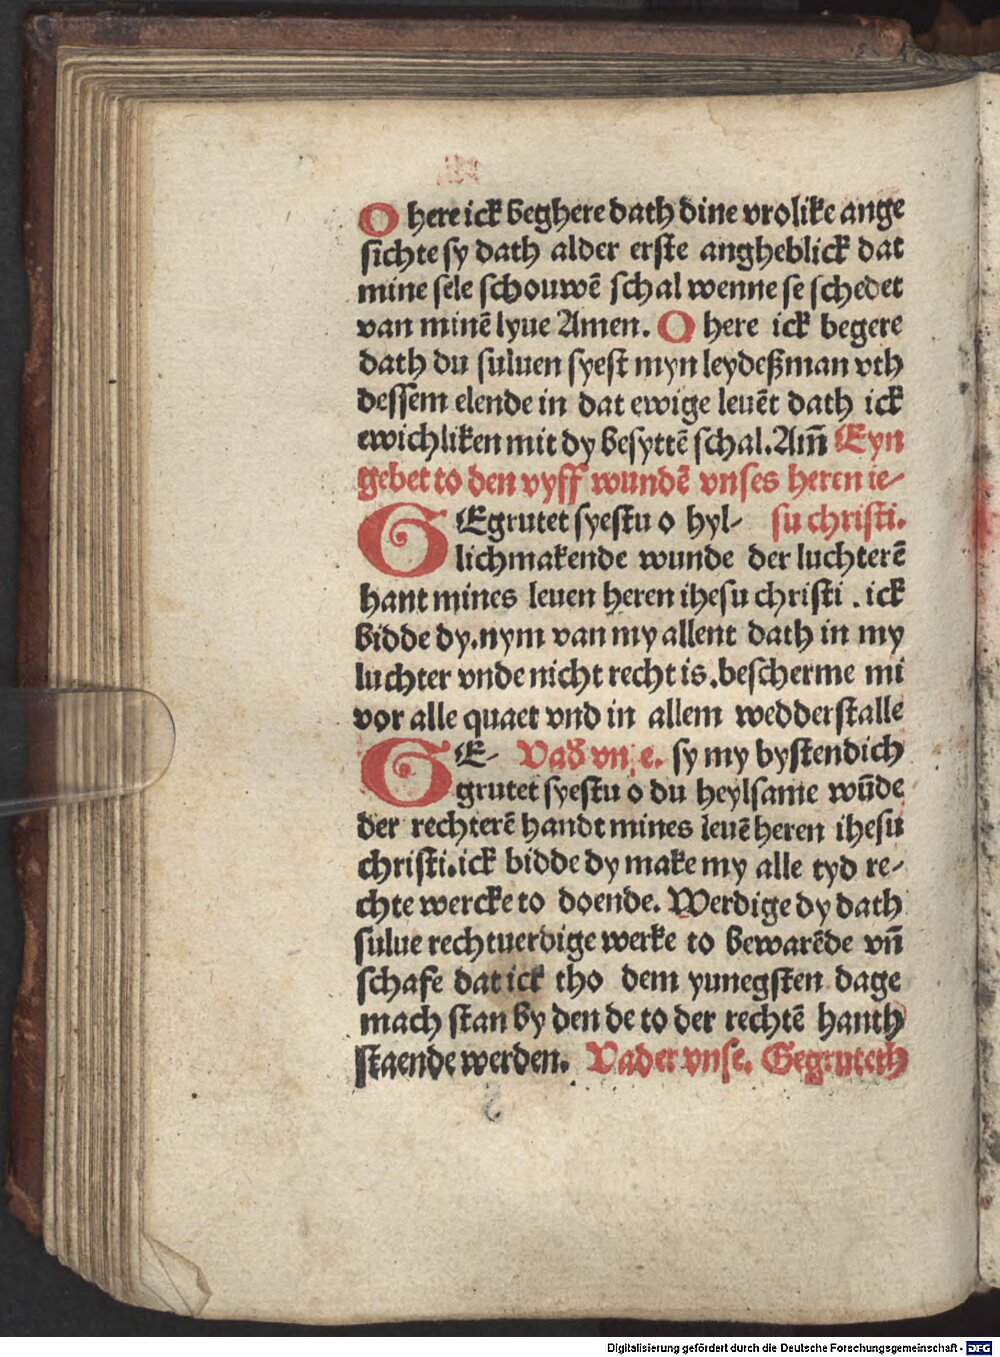 O here ick beghere dath dine vrolike ange
sichte sy dath alder erste angheblick dat
mine sele schouwē schal wenne se schedet
van minē lyue Amen. O here ick begere
dath du suluen syest myn leydeßman vth
dessem elende in dat ewige leuēt dath ick
ewichliken mit dy besyttē schal. Am̄ Eyn
gebet to den vyff wundē vnses heren ie-
GEgrutet syestu o hyl- su christi.
lichmakende wunde der luchterē
hant mines leuen heren ihesu christi . ick
bidde dy. nym van my allent dath in my
luchter vnde nicht recht is. bescherme mi
vor alle quaet vnd in allem wedderstalle
GE- Vad vn, e. sy my bystendich
grutet syestu o du heylsame wūde
der rechterē handt mines leuē heren ihesu
christi. ick bidde dy make my alle tyd re-
chte wercke to doende. Werdige dy dath
sulue rechtuerdige werke to bewarēde vn̄
schafe dat ick tho dem yunegsten dage
mach stan by den de to der rechtē hanth
staende werden. Vader vnse. Gegruteth
Digitalisierung gefördert durch die Deutsche Forschungsgemeinschaft - DFG